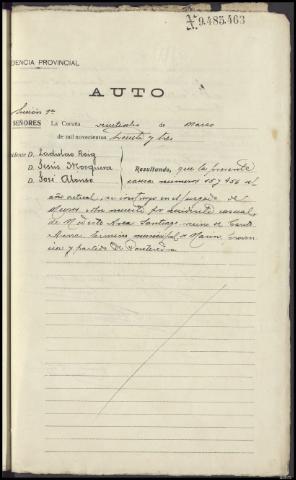 N. 9.485.463
DENCIA PROVINCIAL
AUTO
Sección 1ª
SEÑORES La Coruña de Marzo
de mil novecientos treinta y tres
D. Ladislao Roig
D. Jesús Mosquera
D. José Alonso
Resultando, que la presente
causa número del
año actual, se instruyó en el Juzgado de
Muros sobre muerte por accidente casual,
de Santiago, vecino de
término municipal de Marín,
y partido de Pontevedra